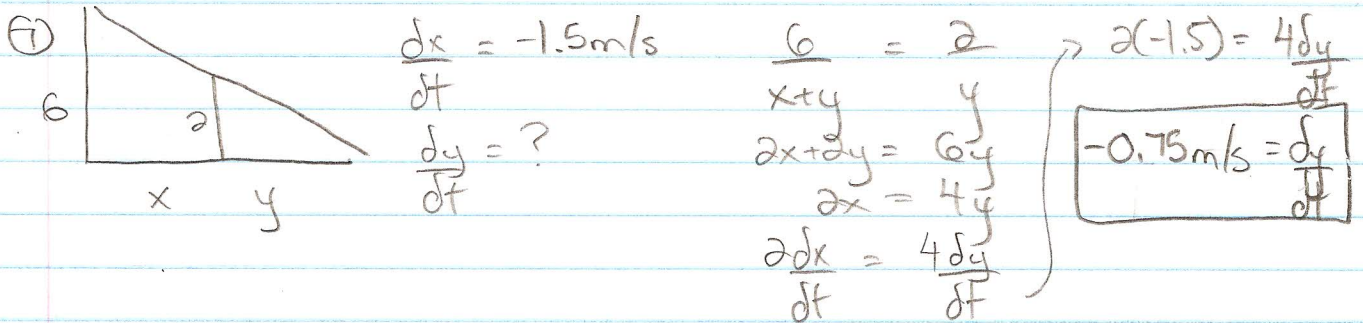 7
6
2
x y
dx/dt = -1.5m/s
dy/dt = ?
6/x+y = 2/y
2x+2y = 6y
2x = 4y
2dx/dt = 4dy/dt
2(-1.5) = 4dy/dt
-0.75m/s = dy/dt